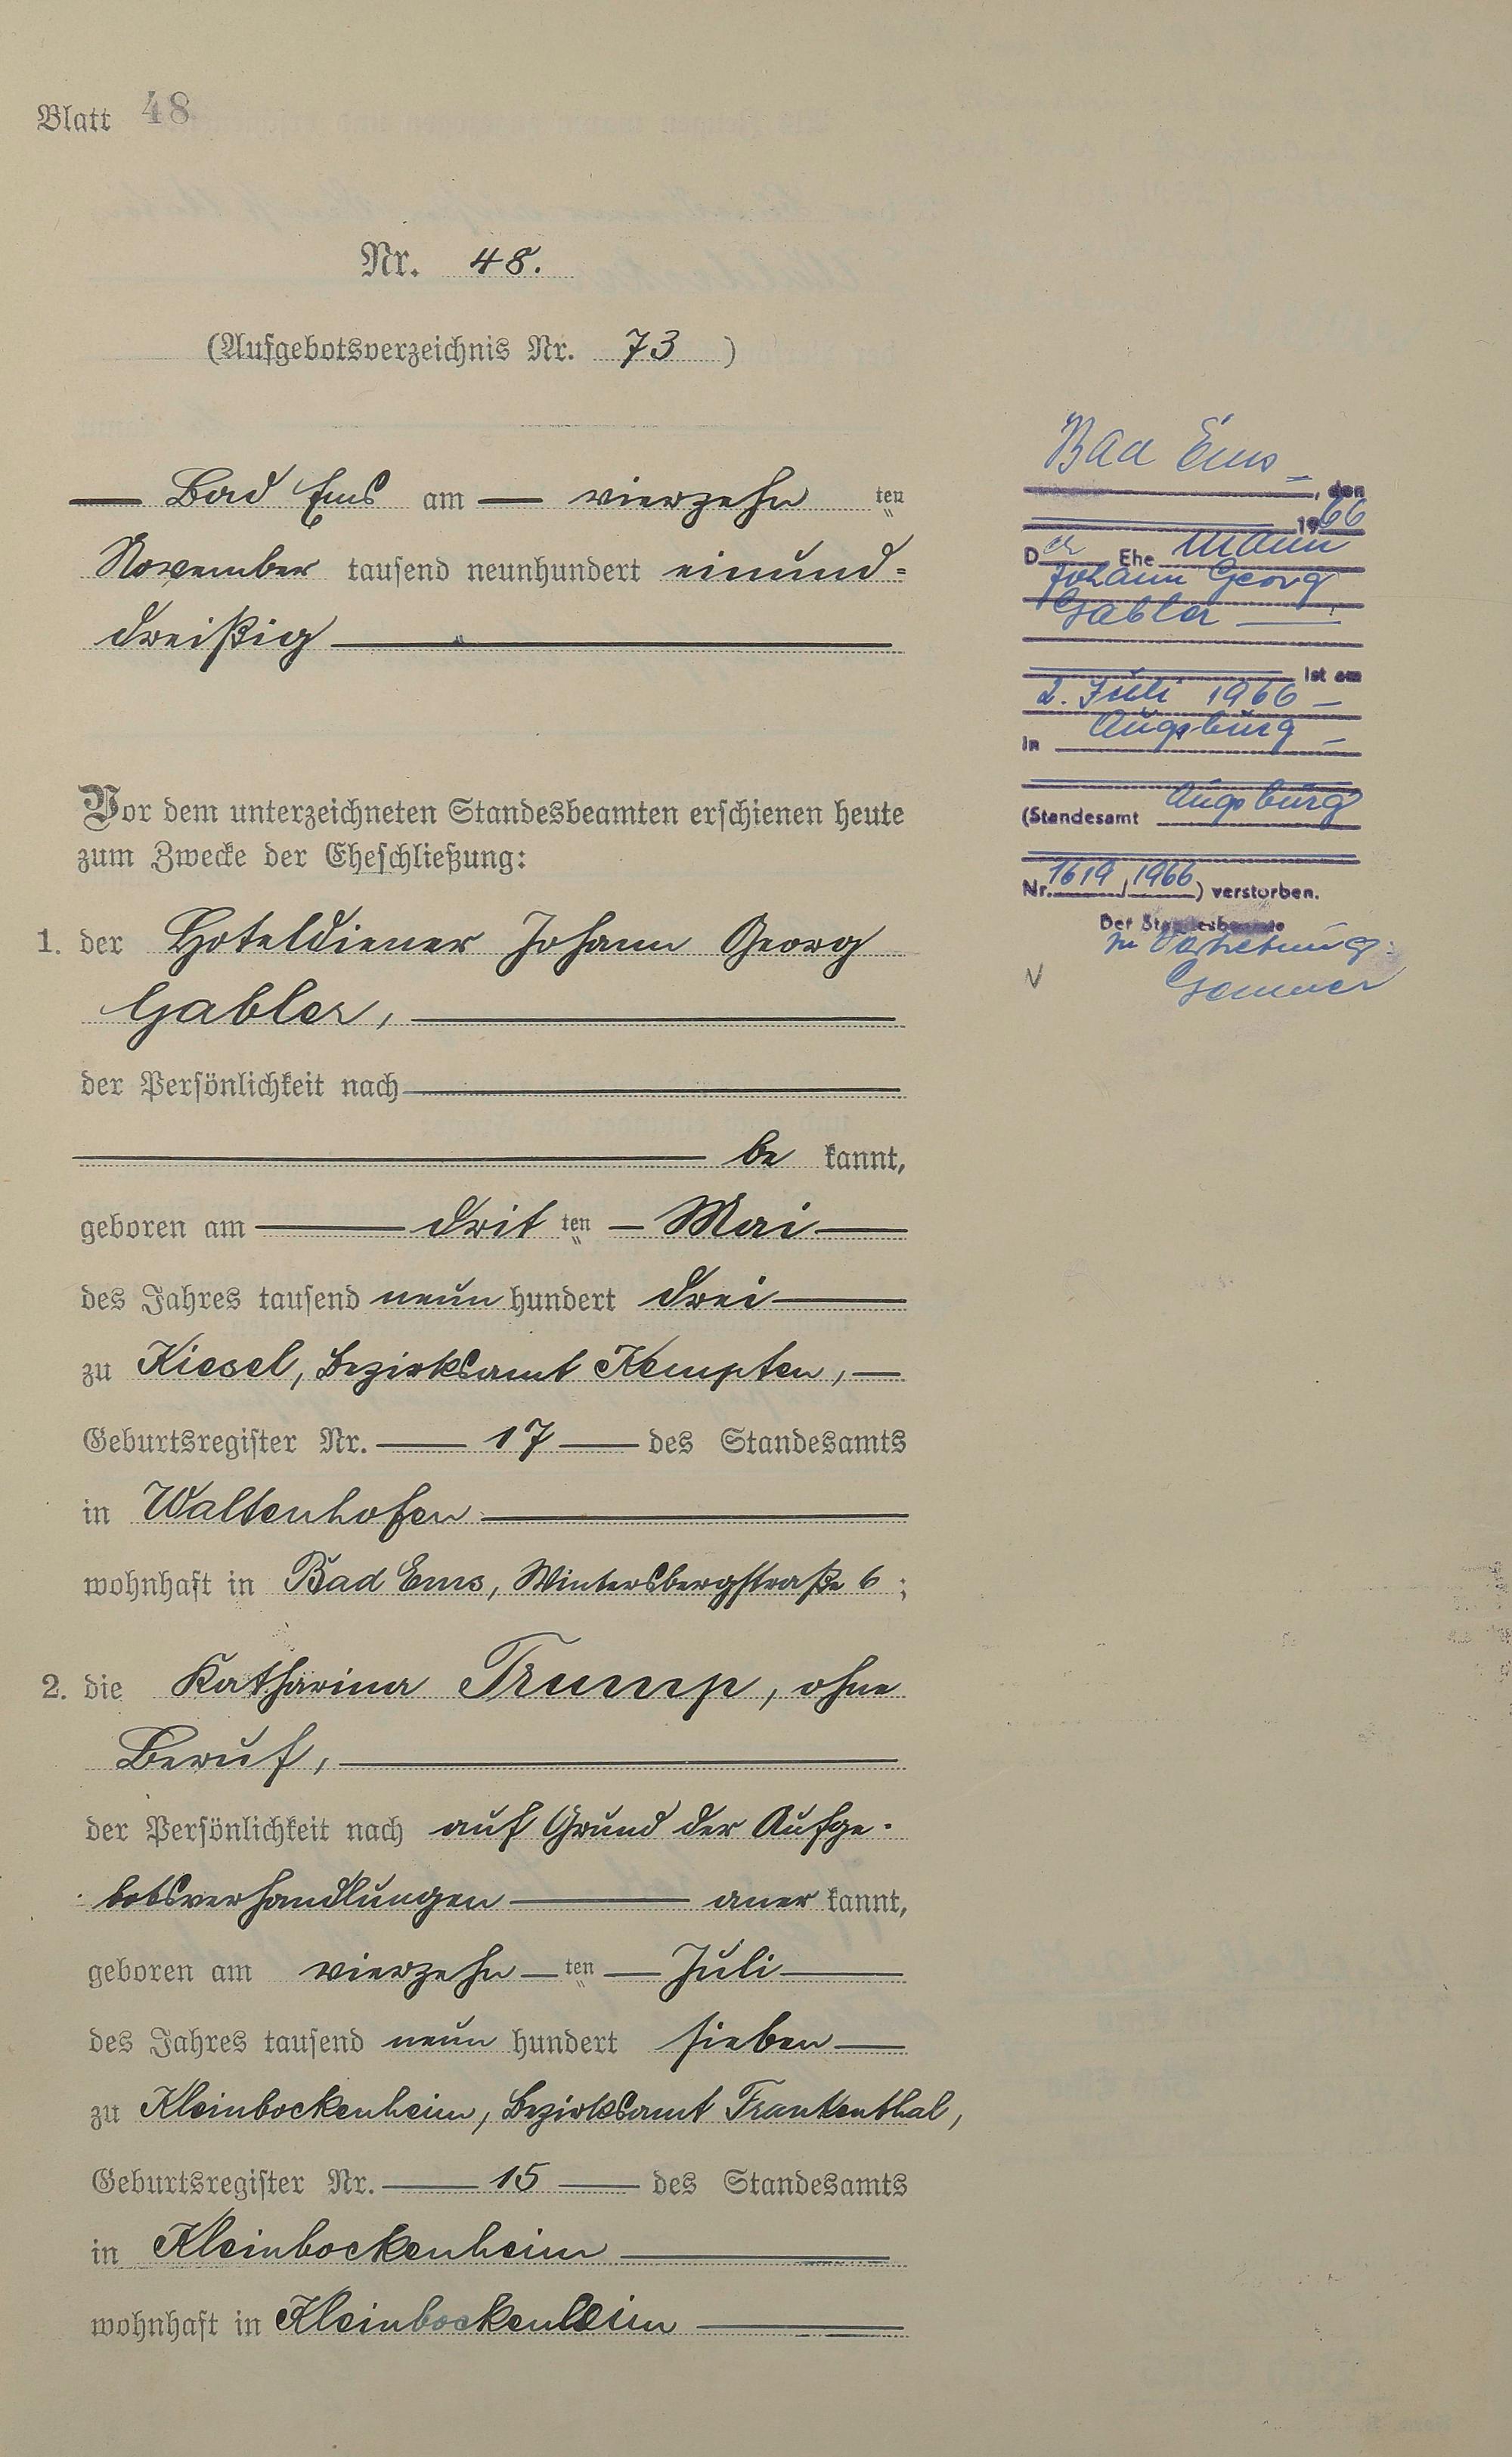 Blatt 48
Nr. 48.
(Aufgebotsverzeichnis Nr. 73 )
Bad Ems am vierzehn ten
November tausend neunhundert einund=
dreißig
Vor dem unterzeichneten Standesbeamten erschienen heute
zum Zwecke der Eheschließung:
1. der Hoteldiener Johann Georg
Gabler,
der Persönlichkeit nach
be kannt,
geboren am drit ten Mai
des Jahres tausend neun hundert drei
zu Kiesel, Bezirksamt Kempten,
Geburtsregister Nr. 17 des Standesamts
in Waltenhofen
wohnhaft in Bad Ems, Wintersbergstraße 6 ;
2. die Katharina Trump, ohne
Beruf,
der Persönlichkeit nach auf Grund der Aufge-
botsverhandlungen aner kannt,
geboren am vierzehn ten Juli
des Jahres tausend neun hundert sieben
zu Kleinbockenheim, Bezirksamt Frankenthal,
Geburtsregister Nr. 15 des Standesamts
in Kleinbockenheim
wohnhaft in Kleinbockenheim
Bad Ems
, den
1966
Der Ehe mann
Johann Georg
Gabler
ist am
2. Juli 1966
in Augsburg
(Standesamt Augsburg
Nr. 1619 / 1966 ) verstorben.
Der Standesbeamte
In Vertretung: